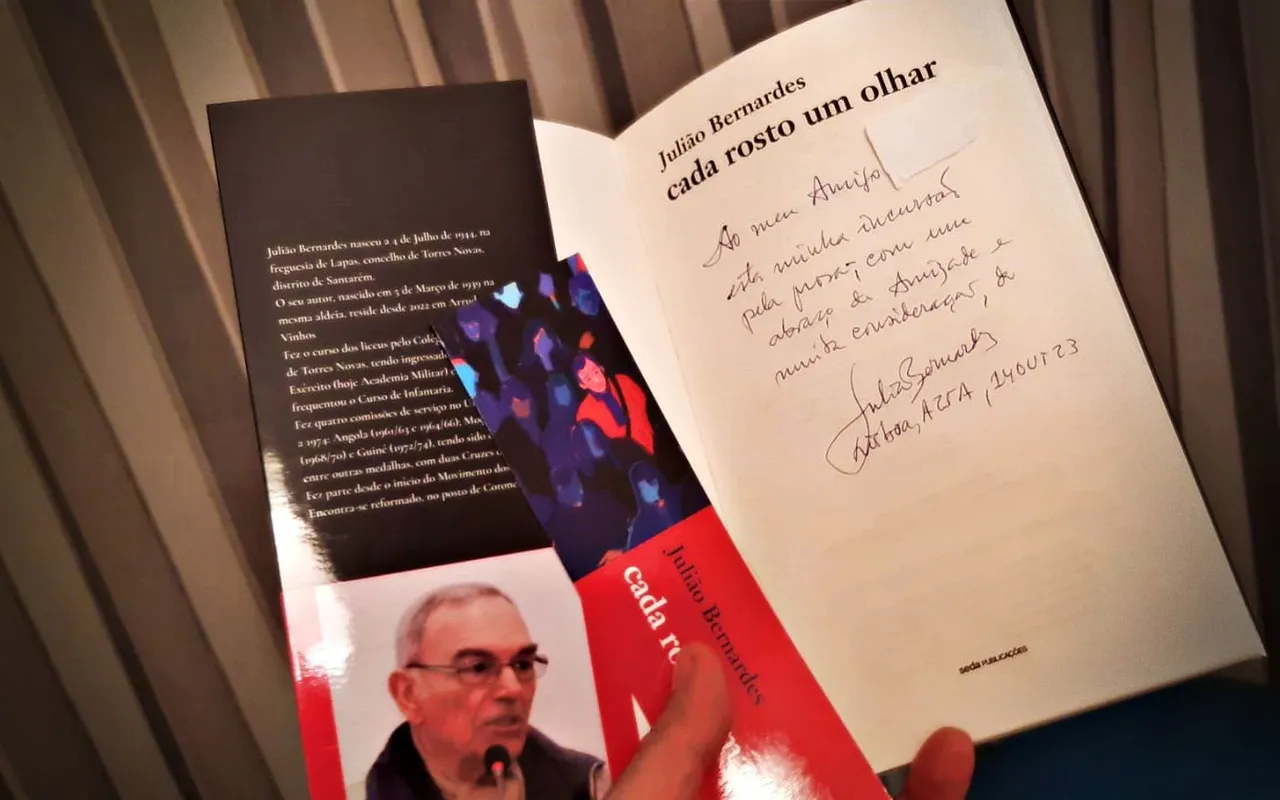 Julião Bernardes nasceu a 4 de Julho de 1944, na
freguesia de Lapas, concelho de Torres Novas,
distrito de Santarém.
O seu autor, nascido em 5 de Março de 1939 na
mesma aldeia, reside desde 2022 em
Vinhos
Fez o curso dos liceus pelo
de Torres Novas, tendo ingressad
Exército (hoje Academia Militar)
frequentou o Curso de Infantaria.
Fez quatro comissões de serviço no
a 1974: Angola (1961/63 e 1964/66); Mo
(1968/70) e Guiné (1972/74), tendo sido
entre outras medalhas, com duas Cruzes
Fez parte desde o início do Movimento dos
Encontra-se reformado, no posto de Corone
Julião Bernardes
cada ro
Julião Bernardes
cada rosto um olhar
Ao meu Amigo
esta minha incursão
pela prosa, com um
abraço da Amizade e
muita consideração, do
Julião Bernardes
Lisboa, A25A, 14OUT23
seda PUBLICAÇÕES